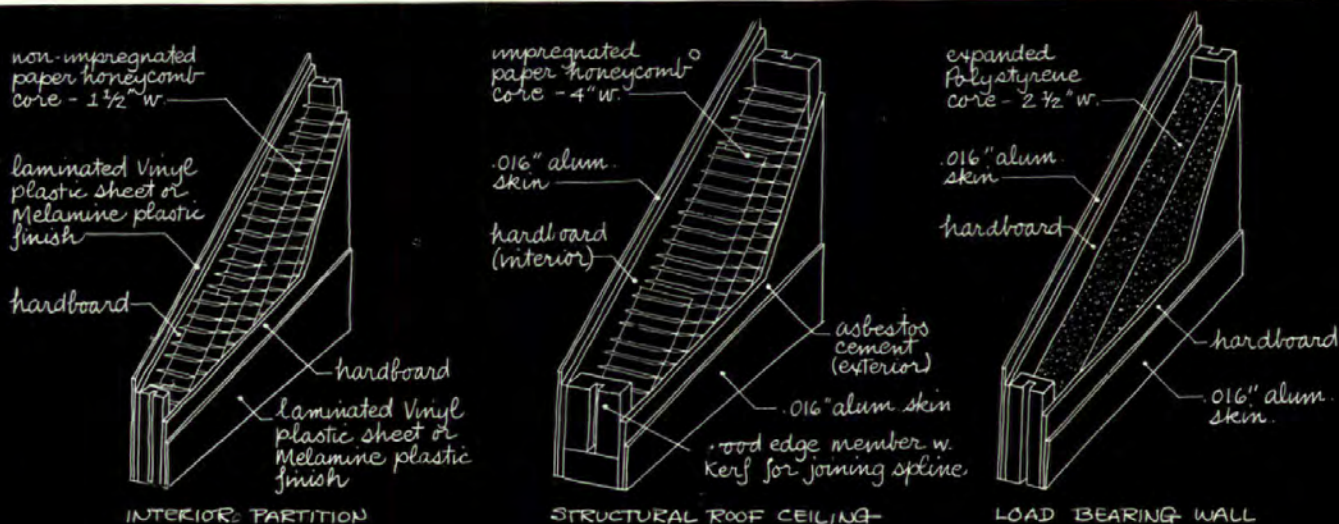 non-impregnated
paper honeycomb
core - 1 1/2" w.
laminated Vinyl
plastic sheet or
Melamine plastic
finish
hardboard
hardboard
laminated Vinyl
plastic sheet or
Melamine plastic
finish
INTERIOR PARTITION
impregnated
paper honeycomb
core - 4" w.
.016" alum.
skin
hardboard
(interior)
asbestos
cement
(exterior)
.016" alum. skin
edge member w.
kerf for joining spline
STRUCTURAL ROOF CEILING
expanded
Polystyrene
core - 2 1/2" w.
.016" alum.
skin
hardboard
hardboard
.016" alum.
skin.
LOAD BEARING WALL